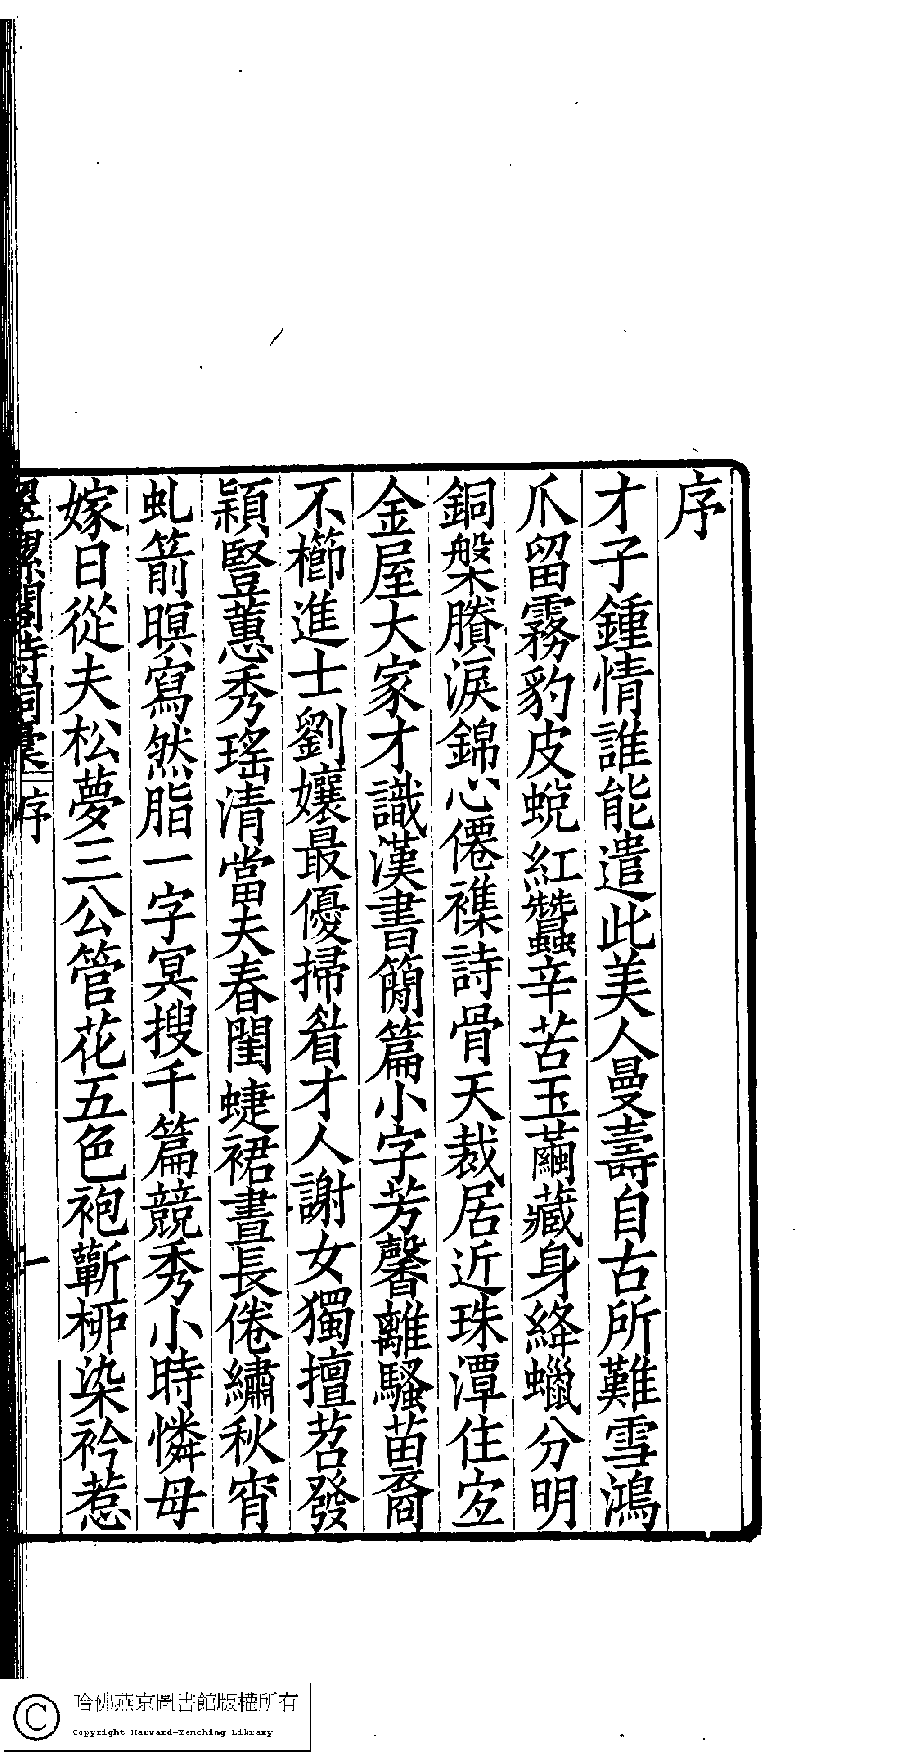 序
才子鍾情誰能遣此美人曼壽自古所難雪鴻
爪留霧豹皮蛻紅蠶辛苦玉繭藏身絳蠟分明
銅槃賸淚錦心僊襍詩骨天裁居近珠潭住㝎
金屋大家才識漢書簡篇小字芳馨離騷苗裔
不櫛進士劉孃最優掃眉才人謝女獨擅苕發
穎豎蕙秀瑤清當夫春閨蜨裙晝長倦繡秋宵
虬箭暝寫然脂一字冥搜千篇競秀小時憐母
嫁日從夫松夢三公管花五色袍蘄桺染衿惹
翠螺閣詩詞稾 序 一
哈佛燕京圖書館版權所有
Copyright Harvard-Yenching Library